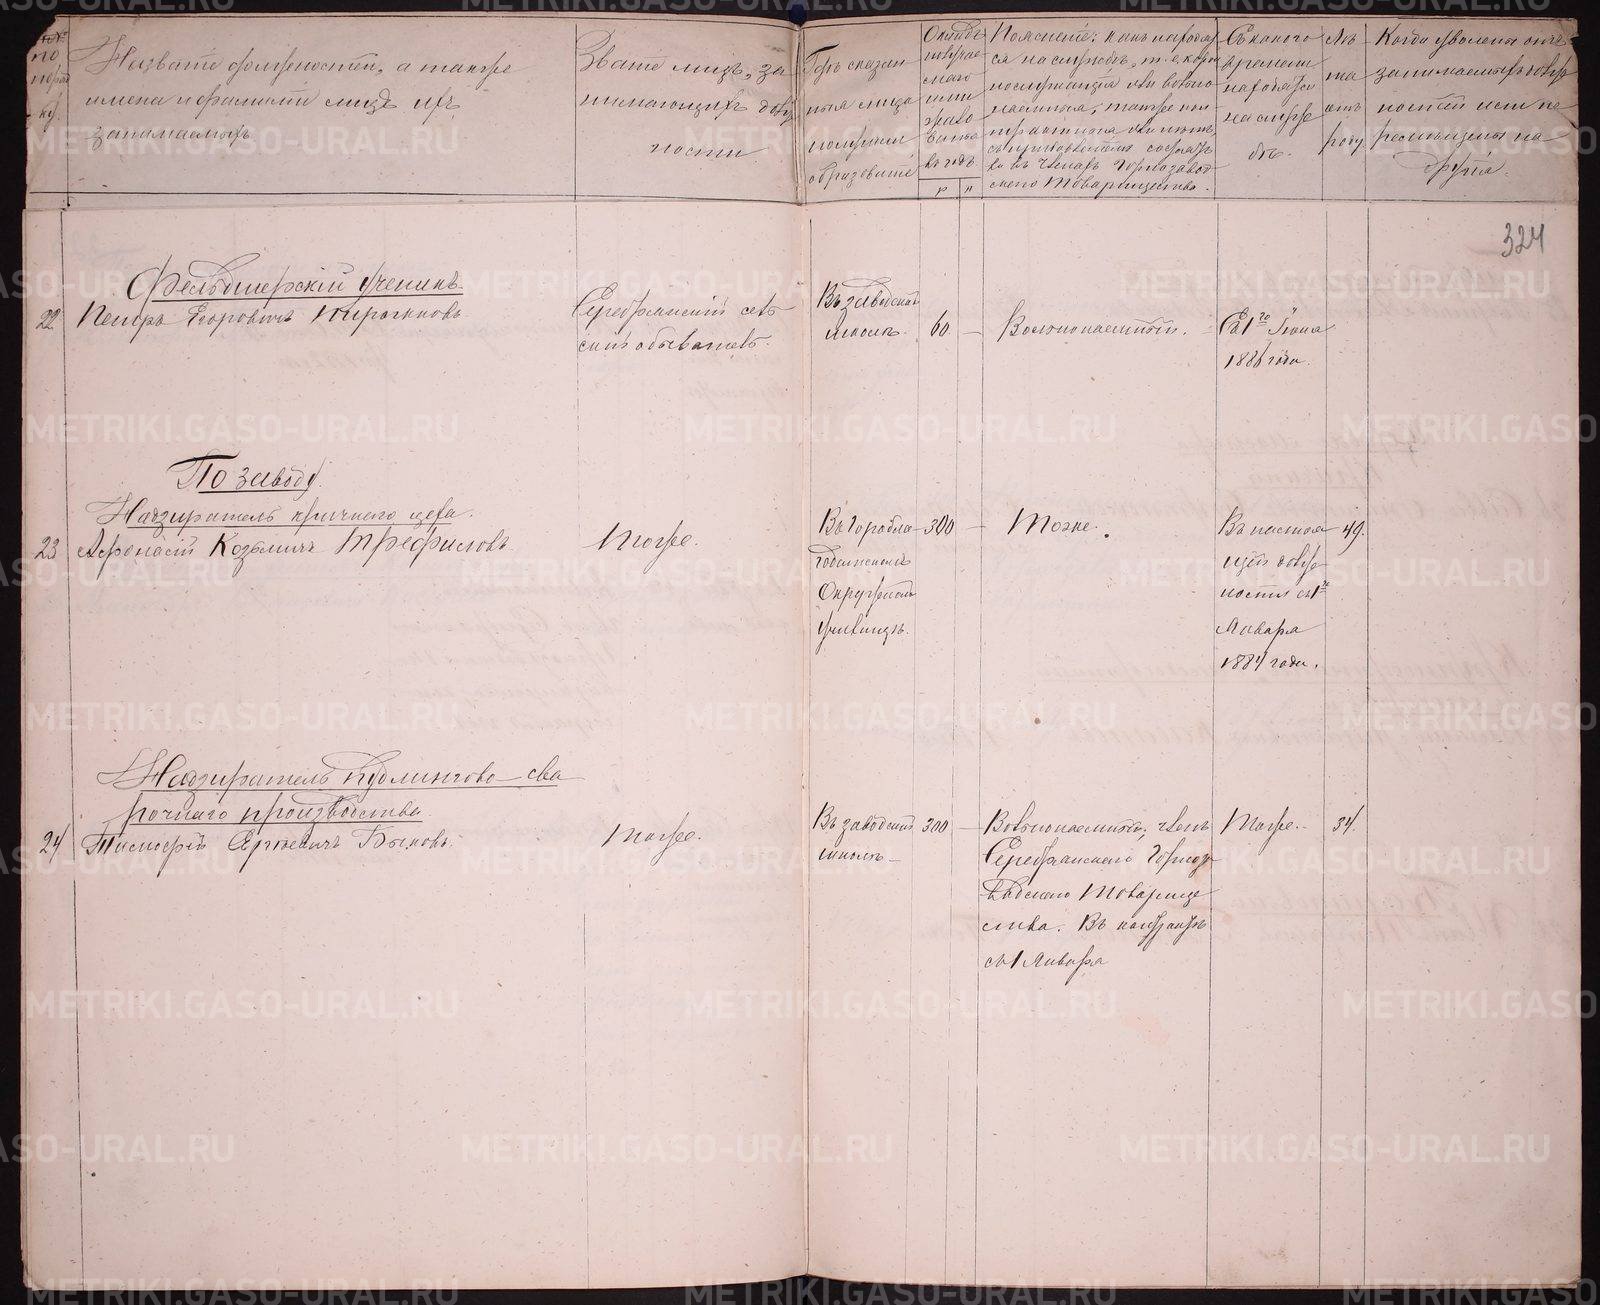 №№
по
поряд
ку.
Названіе должностей, а также
имена и фамиліи лицъ ихъ
занимаемыхъ
Званіе лицъ, за
нимающихъ долж
ности.
Гдѣ сказан
ныя лица
получили
образованіе
Окладъ
жало
ванья
въ годъ.
р к
Поясненіе: какъ находят
ся на службѣ, т. е. коро
послужащія или вольно
наемныя, также кон
трактныя или нѣтъ,
ли въ членахъ Горнозавод
скаго Товарищества.
Съ какого
времени
находятся
на служ
бѣ.
Лѣ
та
отъ
роду
Когда уволены отъ
занимаемыхъ долж
ностей или пе
ремѣщены на
другія.
324
Фельдшерскій ученикъ.
22 Петръ Егоровичъ Пирожковъ
Серебрянскій сель
скій обыватель.
Въ заводской
школѣ.
60 —
Вольнонаемный.
Съ 1го Іюня
1886 года.
По заводу.
Надзиратель кричнаго цеха.
23 Афонасій Козьмичъ Трефиловъ
Тоже.
Въ Горобла
годатскомъ
Окружномъ
училищѣ.
300 —
Тоже.
Въ настоя
щей долж
ности съ 1го
Января
1884 года.
49.
Надзиратель пудлингово-сва
рочнаго производства
24 Тимофей Сергѣевичъ Быковъ.
Тоже.
Въ заводской
школѣ
300 —
Вольнонаемный, членъ
Серебрянскаго Горноза
водскаго Товарище
ства. Въ контрактѣ
съ 1 Января
Тоже.
34.
METRIKI.GASO-URAL.RU